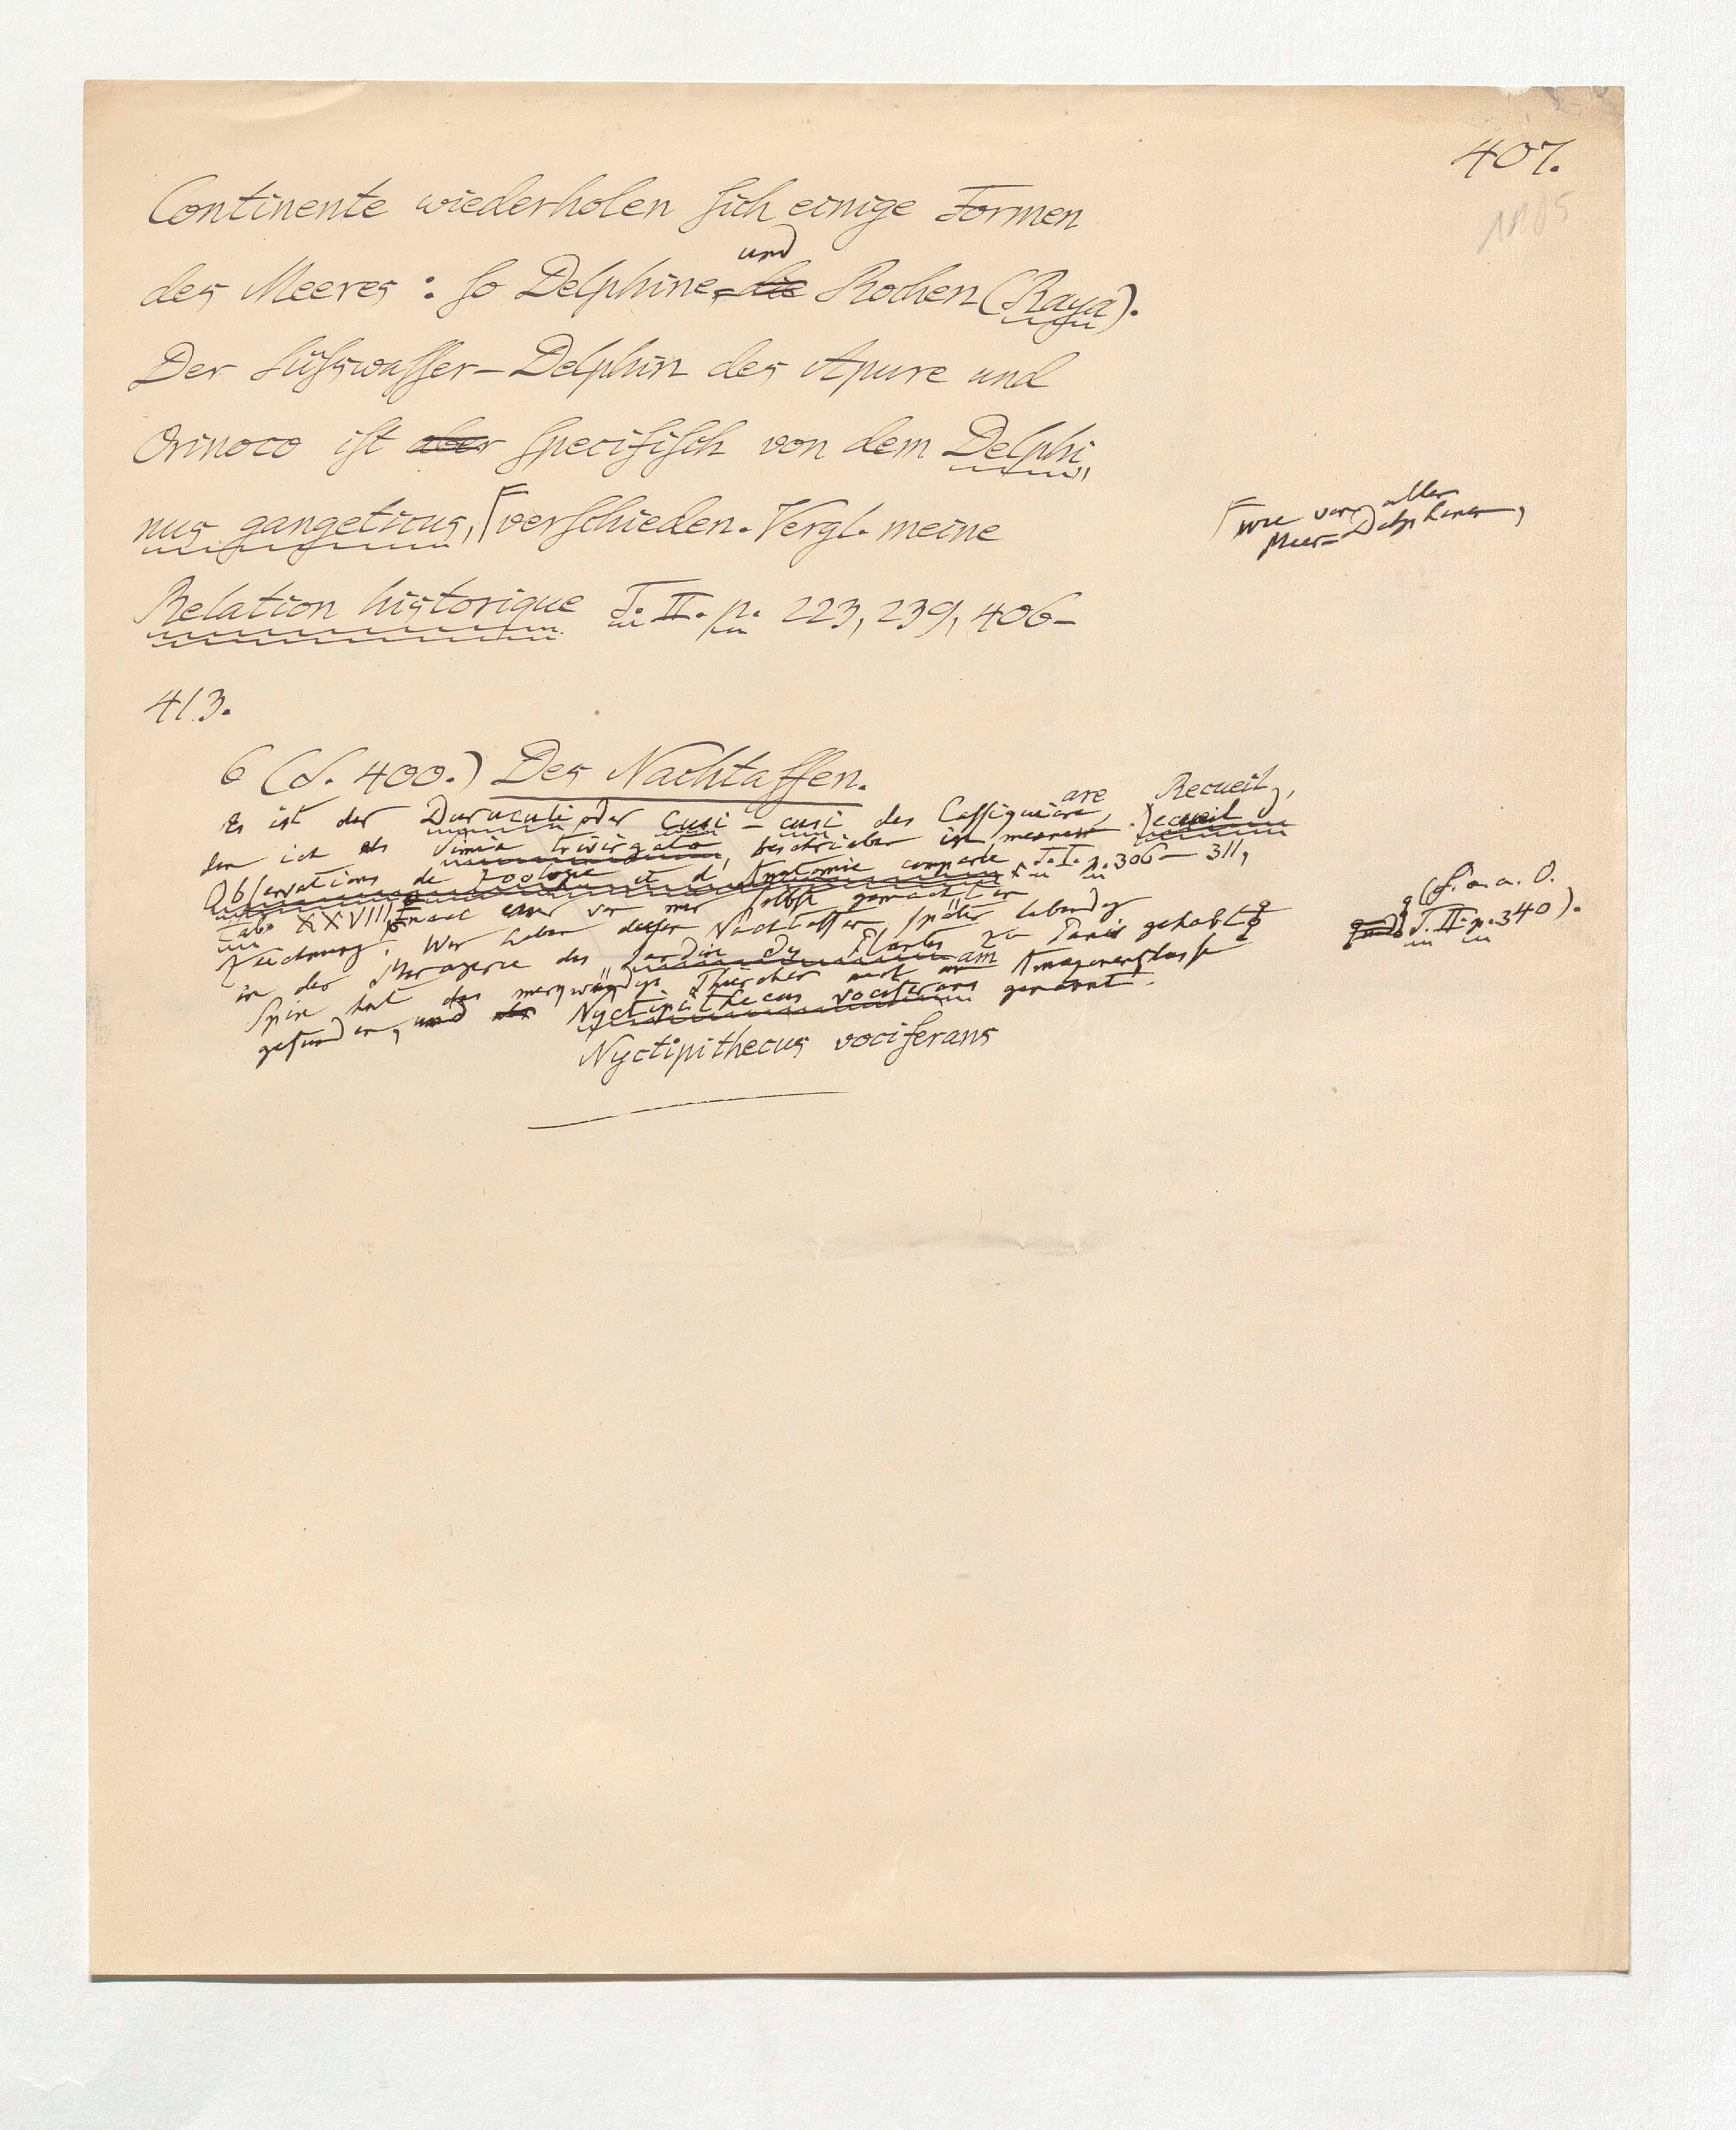 407.
1805
Continente wiederholen ſich einige Formen
und
des Meeres: ſo Delphine, die Rochen (Raya).
Der Süſswaſſer-Delphin des Apure und
Orinoco iſt aber ſpecifiſch von dem Delphi-
nus gangeticus, ⌈verſchieden. Vergl. meine
⌈wie von allen
Meer-Delphinen,
Relation historique T. II. p. 223, 239, 406-
413.
6 (S. 400.) Des Nachtaffen.
are Recueil
Es ist der Duruculi oder Cusi-cusi des Caſſiquiare,
den ich als Simia trivirgata, beschrieben in meinem Recueil
Obſervations de Zoologie et d'Anatomie comparée T. I. p. 306-311,
Tab. XXVIII nach einer von mir ſelbſt gemachten
Zeichnung. Wir haben dieſen Nachtaffen ſpäter lebendig
in der Menagerie des Jardin des Plantes zu Paris gehabt
(ſ. a. a. O.
T. II. p. 340).
Spix hat das merkwürdige Thierchen auch am Amazonenfluſſe
gefunden, und Nyctipithecus vociferans genannt.
Nyctipithecus vociferans